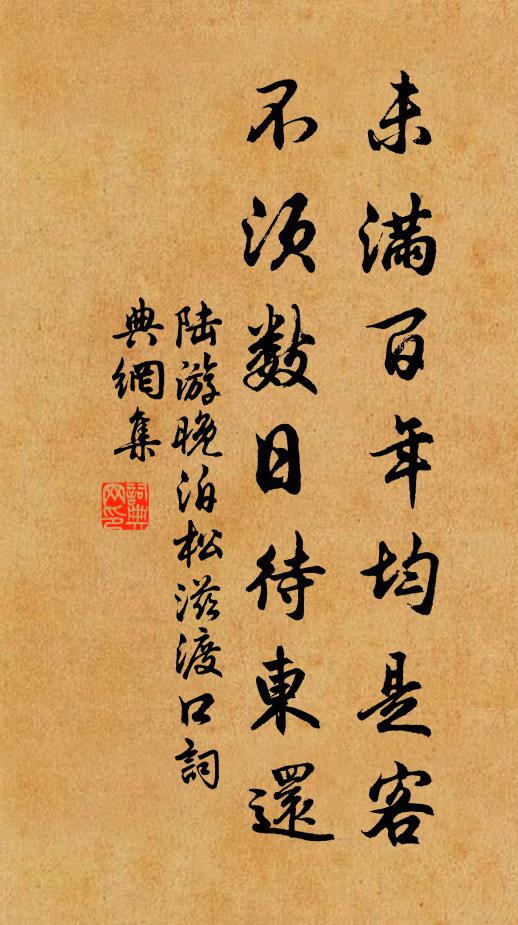 未滿百年均是客
不須數日待東還
陸游晚泊松滋渡口詞
典網集
詞典
网印